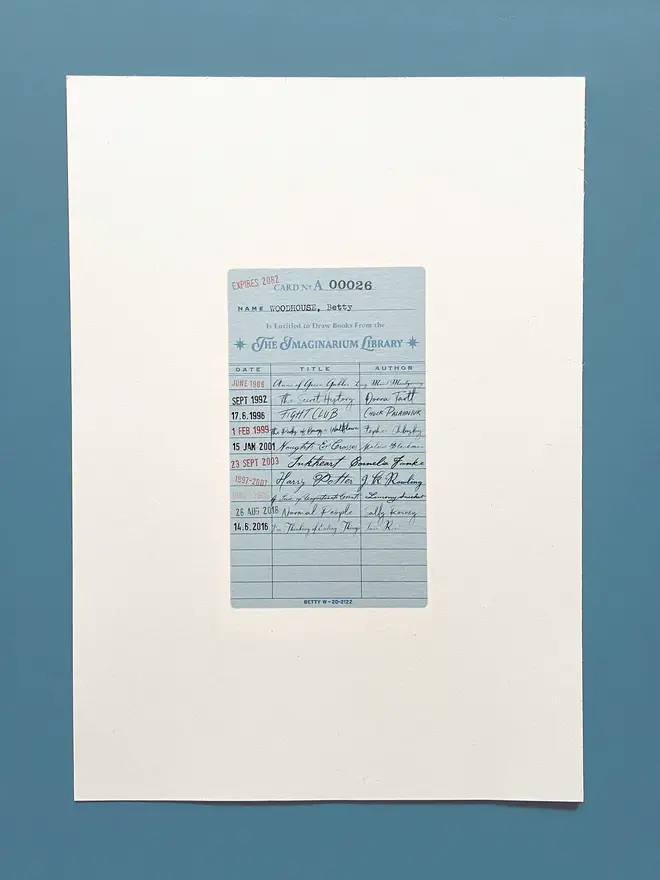 EXPIRES 2082
CARD No A 00026
NAME WOODHOUSE, Betty
Is Entitled to Draw Books From the
The Imaginarium Library
DATE TITLE AUTHOR
JUNE 1908 Anne of Green Gables Lucy Maud Montgomery
SEPT 1992 The Secret History Donna Tartt
17.6.1996 FIGHT CLUB CHUCK PALAHNIUK
1 FEB 1999 the Perks of Being a Wallflower Stephen Chbosky
15 JAN 2001 Noughts & Crosses Malorie Blackman
23 SEPT 2003 Inkheart Cornelia Funke
1997-2007 Harry Potter J K Rowling
A Series of Unfortunate Events Lemony Snicket
26 AUG 2018 Normal People Sally Rooney
14.6.2016 I'm Thinking of Ending Things Iain R
BETTY W - 20-2122